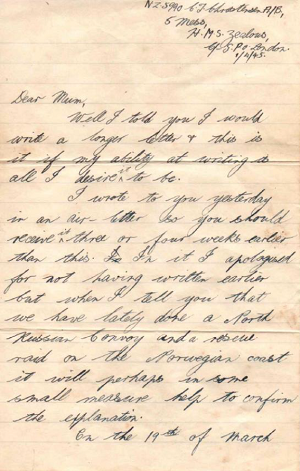 NZ5990 A/B,
5 Mess,
H.M.S. Zealous,
c/o G.P.O. London.
1/4/45.
Dear Mum,
Well I told you I would
write a longer letter & this is
it if my ability at writing is
all I desire it to be.
I wrote to you yesterday
in an air-letter so you should
receive it three or four weeks earlier
than this. In it I apologised
for not having written earlier
but when I tell you that
we have lately done a North
Russian Convoy and a rescue
raid on the Norwegian coast
it will perhaps in some
small measure help to confirm
the explanation.
On the 19th of March